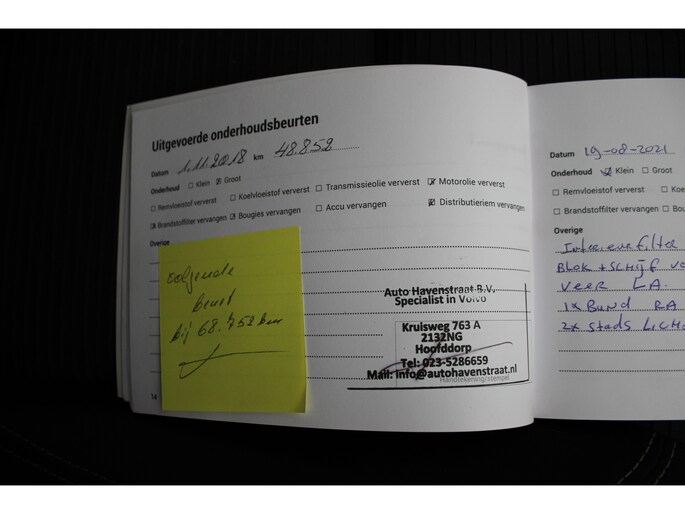 Uitgevoerde onderhoudsbeurten
Datum 1.11.2018 km 48.858
Onderhoud Klein Groot
Remvloeistof ververst Koelvloeistof ververst Transmissieolie ververst Motorolie ververst
Brandstoffilter vervangen Bougies vervangen Accu vervangen Distributieriem vervangen
Overige
volgende
beurt
bij 68.758 km
Auto Havenstraat B.V.
Specialist in Volvo
Kruisweg 763 A
2132NG
Hoofddorp
Tel: 023-5286659
Mail: info@autohavenstraat.nl
Handtekening/stempel
14
Datum 19-08-2021
Onderhoud Klein Groot
Remvloeistof ververst Koel
Brandstoffilter vervangen Bou
Overige
Interieurfilter
BLOK + SCHIJF VO
VEER L.A.
1x BAND RA
2x Stads Licht